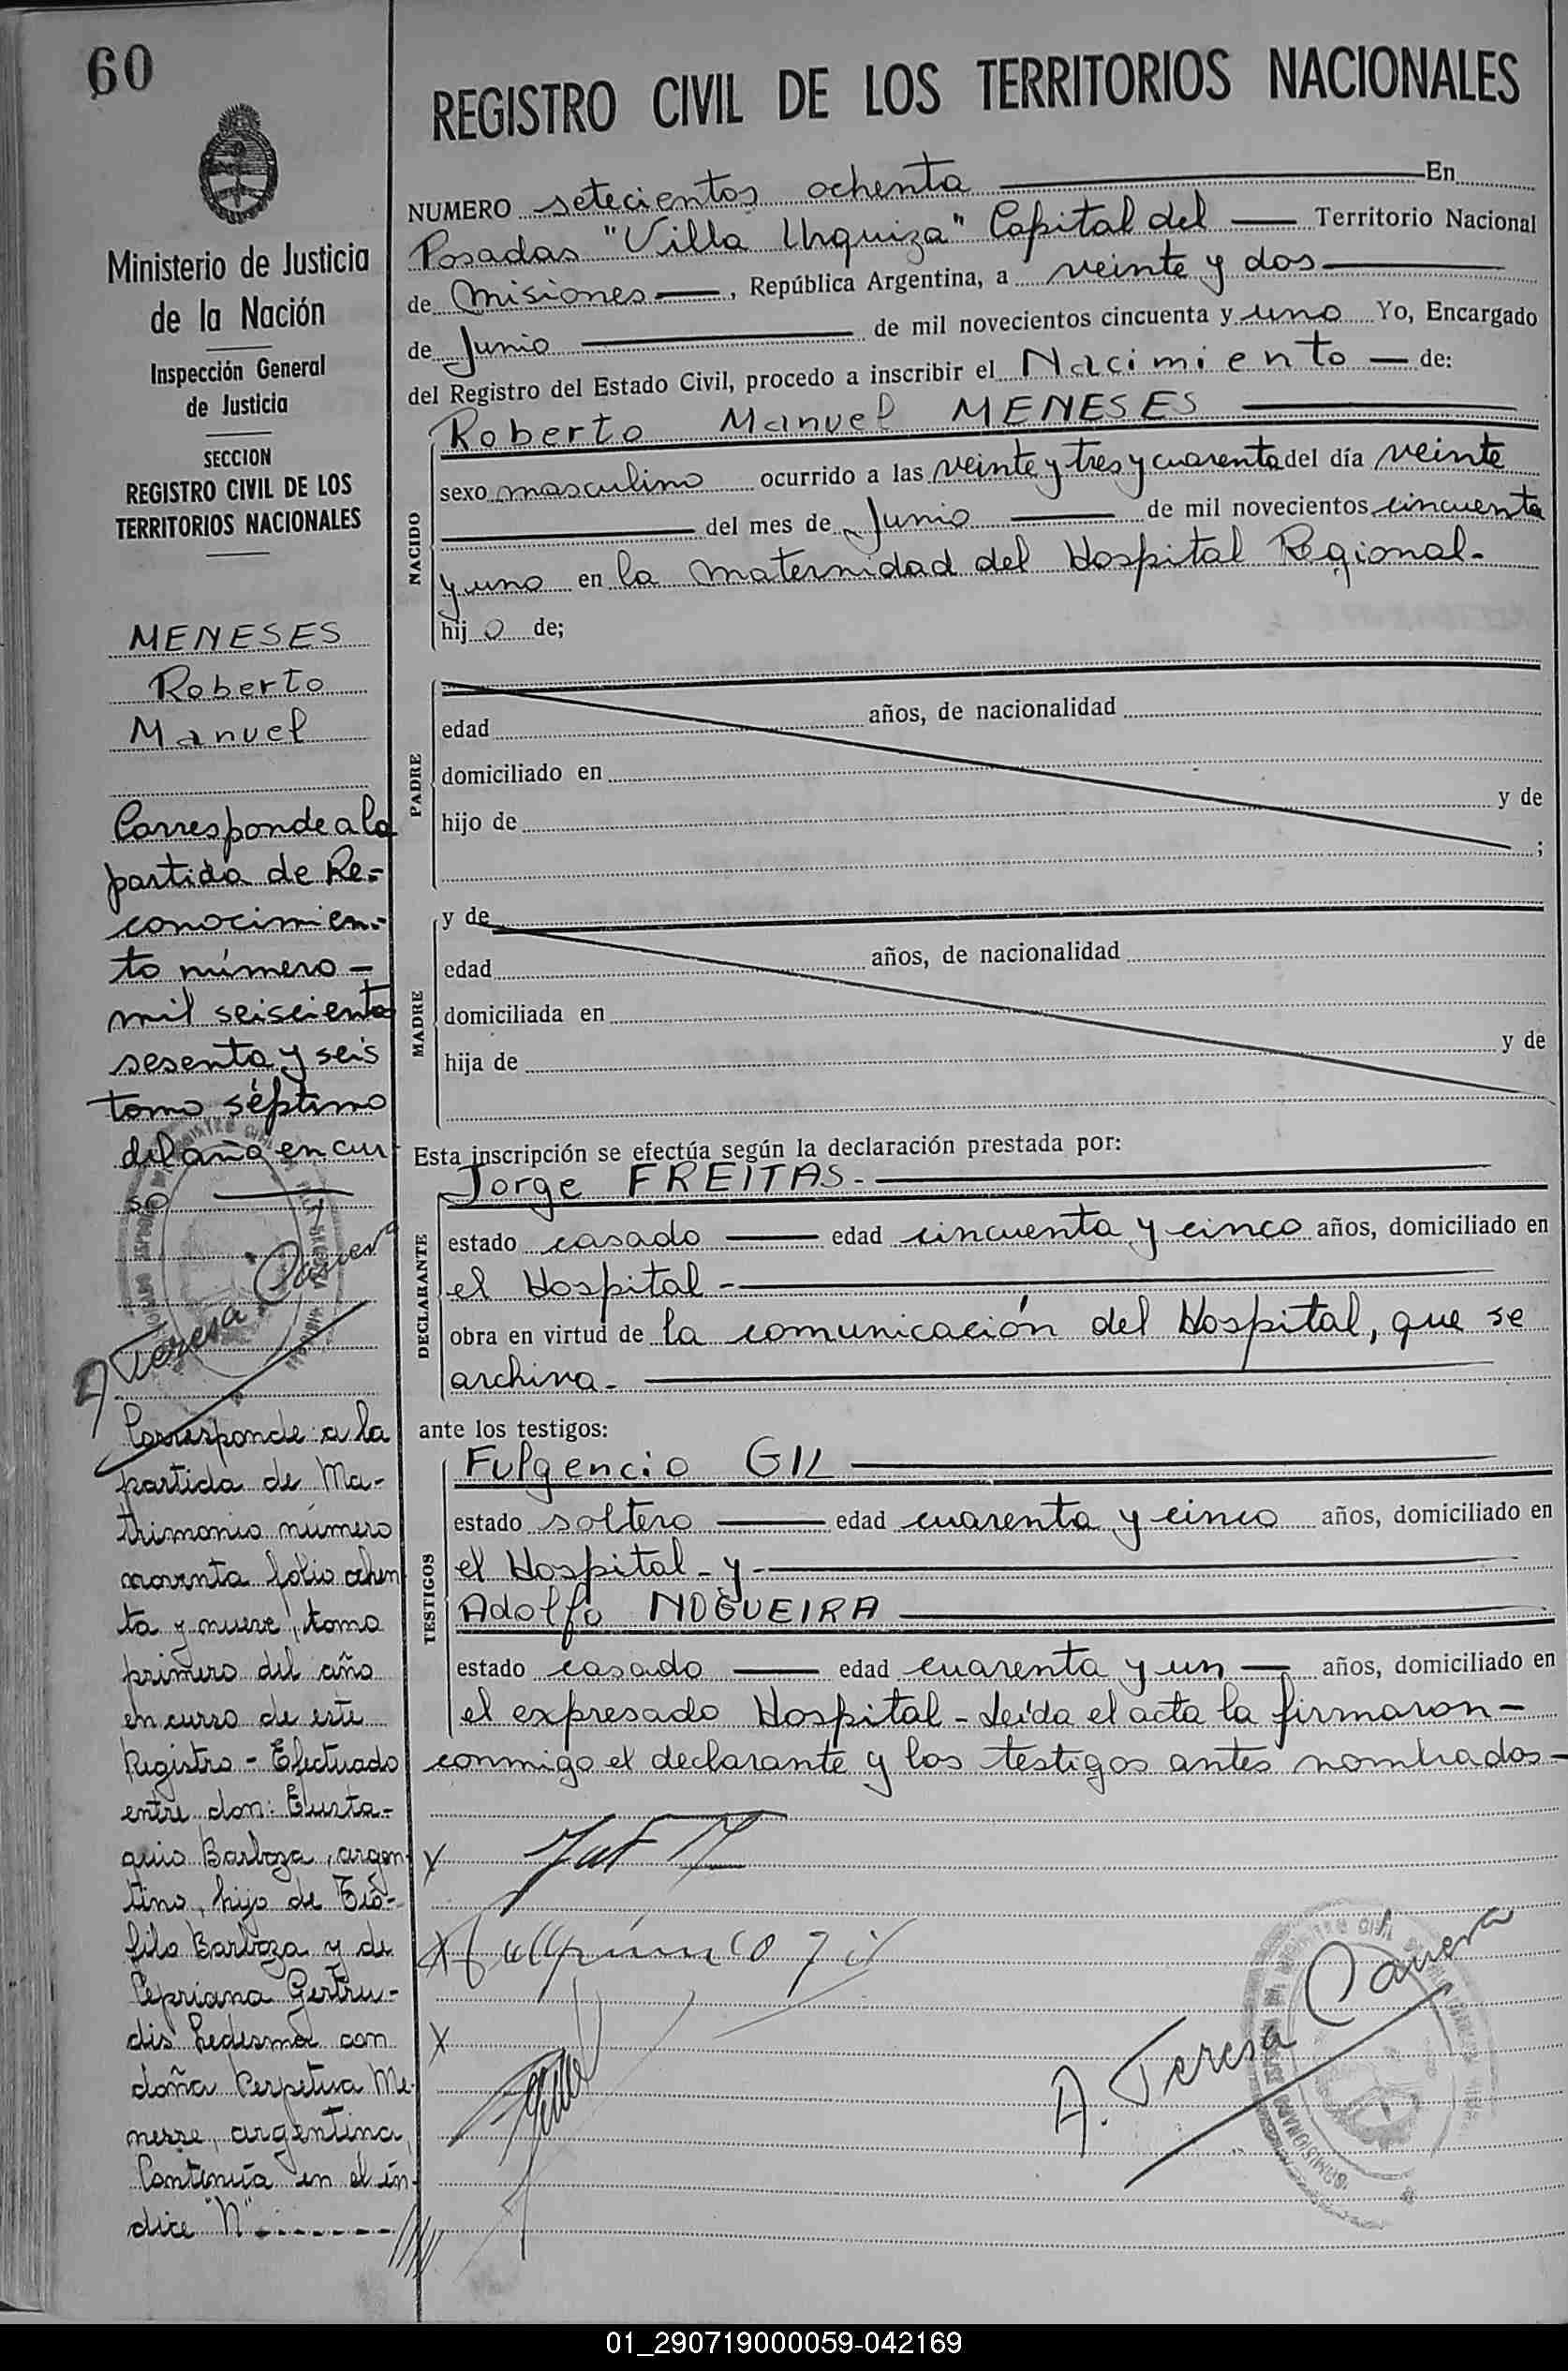 60
REGISTRO CIVIL DE LOS TERRITORIOS NACIONALES
Ministerio de Justicia
de la Nación
Inspección General
de Justicia
SECCION
REGISTRO CIVIL DE LOS
TERRITORIOS NACIONALES
MENESES
Roberto
Manuel
Corresponde a la
partida de Re-
conocimien-
to número -
mil seiscientos
sesenta y seis
tomo séptimo
del año en cur
so
A. Teresa Canera
Corresponde: a la
partida de Ma-
trimonio número
noventa folio ochen
ta y nueve, tomo
primero del año
en curso de este
Registro - Efectuado
entre don: Eusta-
quio Barboza, argen
tino, hijo de Teó-
filo Barboza y de
Cepriana Gertru-
dis Ledesma con
doña Perpetua Me-
nesse, argentina,
Continúa en el ín-
dice "N"
NUMERO setecientos ochenta En
Posadas "Villa Urquiza" Capital del Territorio Nacional
de Misiones, República Argentina, a veinte y dos
de Junio de mil novecientos cincuenta y uno Yo, Encargado
del Registro del Estado Civil, procedo a inscribir el Nacimiento de:
Roberto Manuel MENESES
NACIDO
sexo masculino ocurrido a las veinte y tres y cuarenta del día veinte
del mes de Junio de mil novecientos cincuenta
y uno en la Maternidad del Hospital Regional.-
hijo de;
PADRE
edad años, de nacionalidad
domiciliado en
hijo de y de
;
MADRE
y de
edad años, de nacionalidad
domiciliada en
hija de y de
Esta inscripción se efectúa según la declaración prestada por:
Jorge FREITAS.-
DECLARANTE
estado casado edad cincuenta y cinco años, domiciliado en
el Hospital -
obra en virtud de la comunicación del Hospital, que se
archiva.-
ante los testigos:
TESTIGOS
Fulgencio GIL
estado soltero edad cuarenta y cinco años, domiciliado en
el Hospital - y -
Adolfo NOGUEIRA
estado casado edad cuarenta y un años, domiciliado en
el expresado Hospital - Leída el acta la firmaron -
conmigo el declarante y los testigos antes nombrados -
A. Teresa Canera
01_290719000059-042169